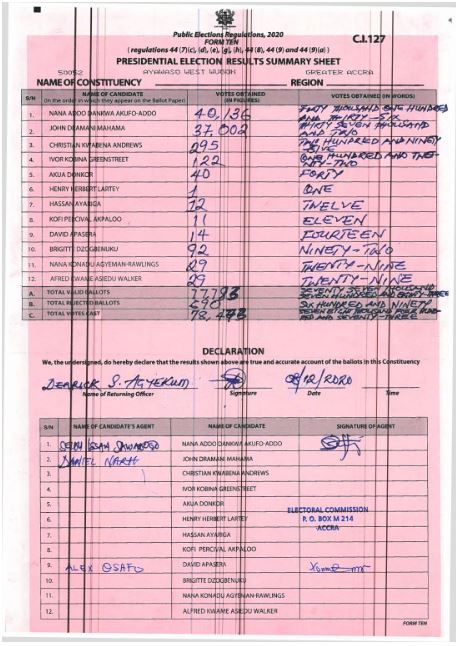 Public Elections Regulations, 2020
FORM TEN
C.I.127
(regulations 44 (7)(c), (d), (e), (g), (h), 44 (8), 44 (9) and 44 (9)(a))
PRESIDENTIAL ELECTION RESULTS SUMMARY SHEET
S0052 AYAWASO WEST WUGON GREATER ACCRA
NAME OF CONSTITUENCY REGION
S/N NAME OF CANDIDATE (In the order in which they appear on the Ballot Paper) VOTES OBTAINED (IN FIGURES) VOTES OBTAINED (IN WORDS)
1. NANA ADDO DANKWA AKUFO-ADDO 40,136 FORTY THOUSAND ONE HUNDRED AND THIRTY-SIX
2. JOHN DRAMANI MAHAMA 37,002 THIRTY SEVEN THOUSAND AND TWO
3. CHRISTIAN KWABENA ANDREWS 295 TWO HUNDRED AND NINETY FIVE
4. IVOR KOBINA GREENSTREET 122 ONE HUNDRED AND TWENTY-TWO
5. AKUA DONKOR 40 FORTY
6. HENRY HERBERT LARTEY 1 ONE
7. HASSAN AYARIGA 12 TWELVE
8. KOFI PERCIVAL AKPALOO 11 ELEVEN
9. DAVID APASERA 14 FOURTEEN
10. BRIGITTE DZOGBENUKU 92 NINETY-TWO
11. NANA KONADU AGYEMAN-RAWLINGS 29 TWENTY-NINE
12. ALFRED KWAME ASIEDU WALKER 29 TWENTY-NINE
A. TOTAL VALID BALLOTS SEVENTY SEVEN THOUSAND SEVEN HUNDRED AND EIGHTY-THREE
B. TOTAL REJECTED BALLOTS 690 SIX HUNDRED AND NINETY
C. TOTAL VOTES CAST 78,473 SEVEN EIGHT THOUSAND FOUR HUNDRED AND SEVENTY-THREE
DECLARATION
We, the undersigned, do hereby declare that the results shown above are true and accurate account of the ballots in this Constituency
DERRICK S. AGYEKUM 08/12/2020
Name of Returning Officer Signature Date Time
S/N NAME OF CANDIDATE'S AGENT NAME OF CANDIDATE SIGNATURE OF AGENT
1. NANA ADDO DANKWA AKUFO-ADDO
2. DANIEL NARH JOHN DRAMANI MAHAMA
3. CHRISTIAN KWABENA ANDREWS
4. IVOR KOBINA GREENSTREET
5. AKUA DONKOR
6. HENRY HERBERT LARTEY
ELECTORAL COMMISSION
P. O. BOX M 214
ACCRA
7. HASSAN AYARIGA
8. KOFI PERCIVAL AKPALOO
9. ALEX OSAFO DAVID APASERA
10. BRIGITTE DZOGBENUKU
11. NANA KONADU AGYEMAN-RAWLINGS
12. ALFRED KWAME ASIEDU WALKER
FORM TEN